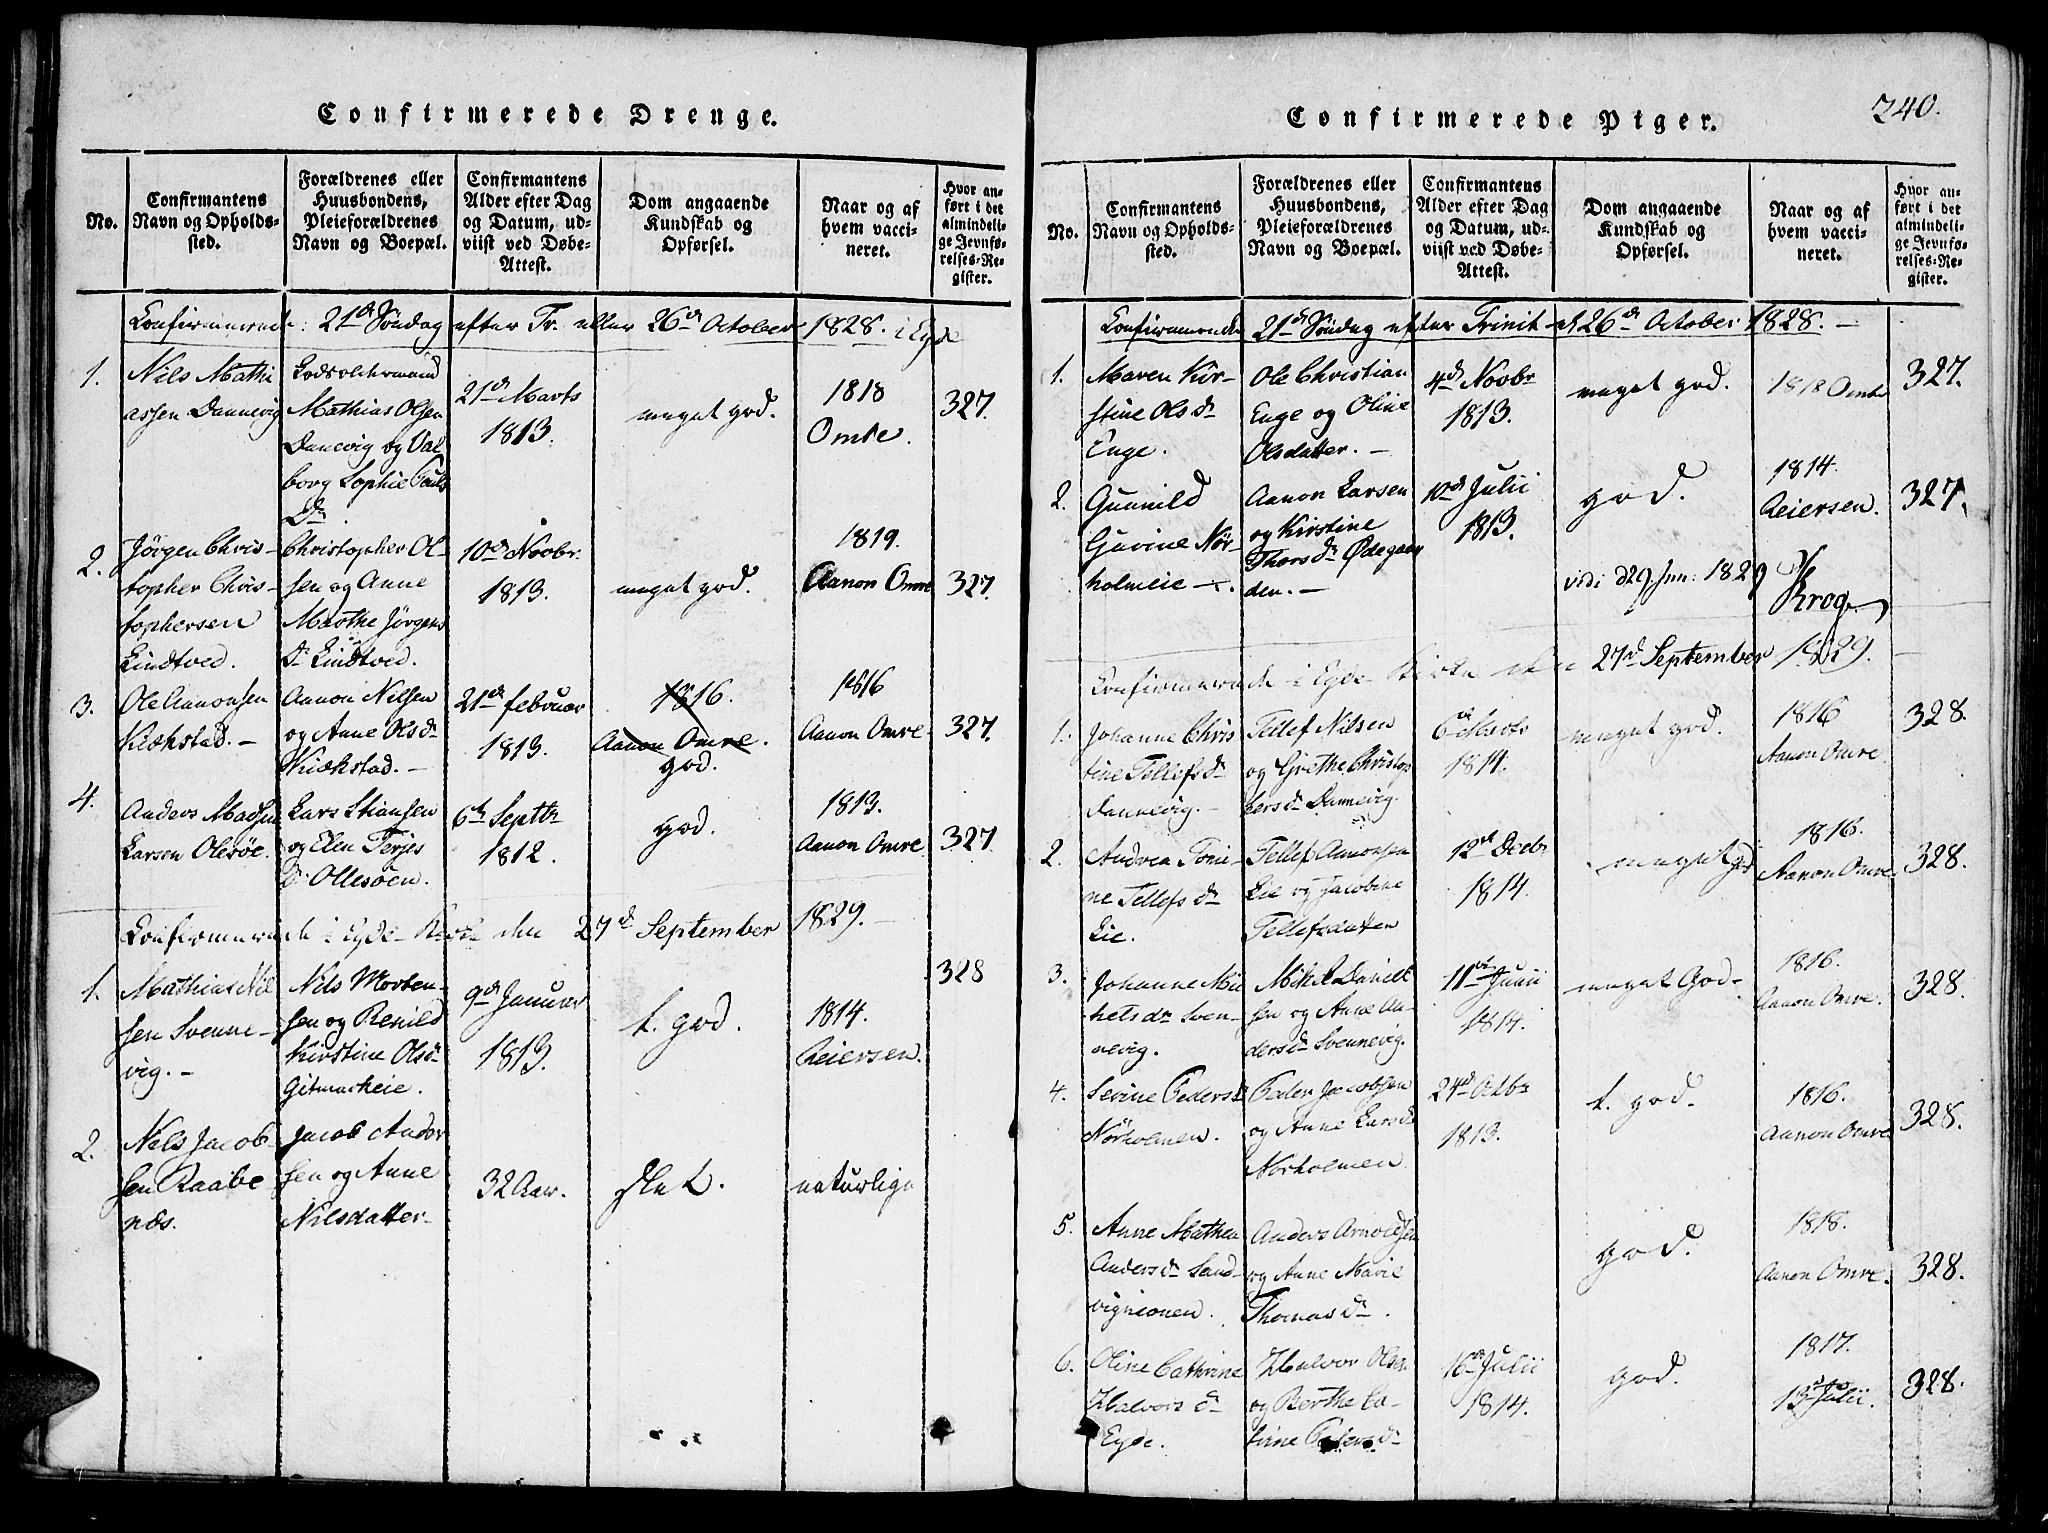 Confirmerede Drenge.
No.
Confirmantens
Navn og Opholds-
sted.
Forældrenes eller
Huusbondens,
Pleieforældrenes
Navn og Boepæl.
Confirmantens
Alder efter Dag
og Datum, ud-
viist ved Døbe-
Attest.
Dom angaaende
Kundskab og
Opførsel.
Naar og af
hvem vacci-
neret.
Hvor an-
ført i det
almindeli-
ge Jevnfø-
relses-Re-
gister.
Confirmerede: 21de Søndag efter Tr. eller 26de October 1828. i Eyde
1.
Nils Mathi
assen Dannevig
Lodsoldermand
Mathias Olsen
Danevig og Val
borg Sophie Pauls
Dr.
21de Marts
1813.
meget god.
1818
Omre.
327.
2.
Jörgen Chris-
topher Chris-
tophersen
Lindtved.
Christopher Ol-
sen og Anne
Marthe Jörgens
Dr Lindtved.
10de Novbr.
1813.
meget god.
1819.
Aanon Omre
327.
3.
Ole Aanonsen
Kickstad. -
Aanon Nilsen
og Anne Olsdr
Kickstad. -
21de februar
1813.
1816.
Aanon Omre.
god.
1816
Aanon Omre.
327.
4.
Anders Madsen
Larsen Olesöe.
Lars Stiansen
og Elen Terjes
dr Ollesöen.
6te Septbr
1812.
god.
1813.
Aanon Omre
327
Confirmerede i Eyde Kirke den 27de September 1829. -
1.
Mathias Nil
sen Svenne-
vig. -
Nils Morten-
sen og Renild
Kirstine Olsdr
Gitmarkeie.
9de Januar
1813.
t. god.
1814.
Reiersen.
328
2.
Nils Jacob-
sen Raabe
næs.
Jacob Ander
sen og Anne
Nilsdatter-
32 Aar.
slet.
naturlige
240.
Confirmerede Piger.
No.
Confirmantens
Navn og Opholds-
sted.
Forældrenes eller
Huusbondens,
Pleieforældrenes
Navn og Boepæl.
Confirmantens
Alder efter Dag
og Datum, ud-
viist ved Døbe-
Attest.
Dom angaaende
Kundskab og
Opførsel.
Naar og af
hvem vacci-
neret.
Hvor an-
ført i det
almindeli-
ge Jevnfø-
relses-Re-
gister.
Confirmerede 21de Söndag efter Trinit. 26de October 1828. -
1.
Maren Kir-
stine Ols dr
Enge.
Ole Christian
Enge og Oline
Olsdatter. -
4de Novbr
1813.
meget god.
1818 Omre
327.
2.
Gunnild
Gurine Nör-
holmeie -.
Aanon Larsen
og Kirstine
Thorsdr Ødegaar
den. -
10de Julii
1813.
god.
1814.
Reiersen.
327.
vidi d 29 Jun: 1829
Krog
Confirmerede i Eyde Kirke den 27de September 1829.
1.
Johanne Chris
tine Tellefs dr
Dannevig. -
Tellef Nilsen
og Grethe Christop
hersdr Dannevig.
6te Marts
1814.
meget god.
1816
Aanon Omre.
328.
2.
Andrea Toni-
ne Tellefs dr
Lie.
Tellef Aanonsen
Lie og Jacobine
Tellefsdatter
12te Decbr
1814.
meget god
1816.
Aanon Omre
328.
3.
Johanne Mic
kels dr Sven-
nevig.
Mikkel Daniel
sen og Anne An-
dersdr Svennevig.
11te Junii
1814.
meget God-
1816.
Aanon Omre.
328.
4.
Sevine Pedersdr
Nörholmen.
Peder Jacobsen
og Anne Larsdr
Norholmen
24de Octbr
1813.
t. god.
1816.
Aanon Omre
328.
5.
Anne Mathea
Anders dr Sand-
vig
Anders Arnoldsen
og Anne Marie
Thomas dr.
god.
1818.
Aanon Omre.
328.
6.
Oline Cathrine
Halvors dr
Eyde.
Halvor Olsen
og Berthe Ca-
trine Peders dr
16de Julii
1814.
god.
1817.
13de Julii.
328.